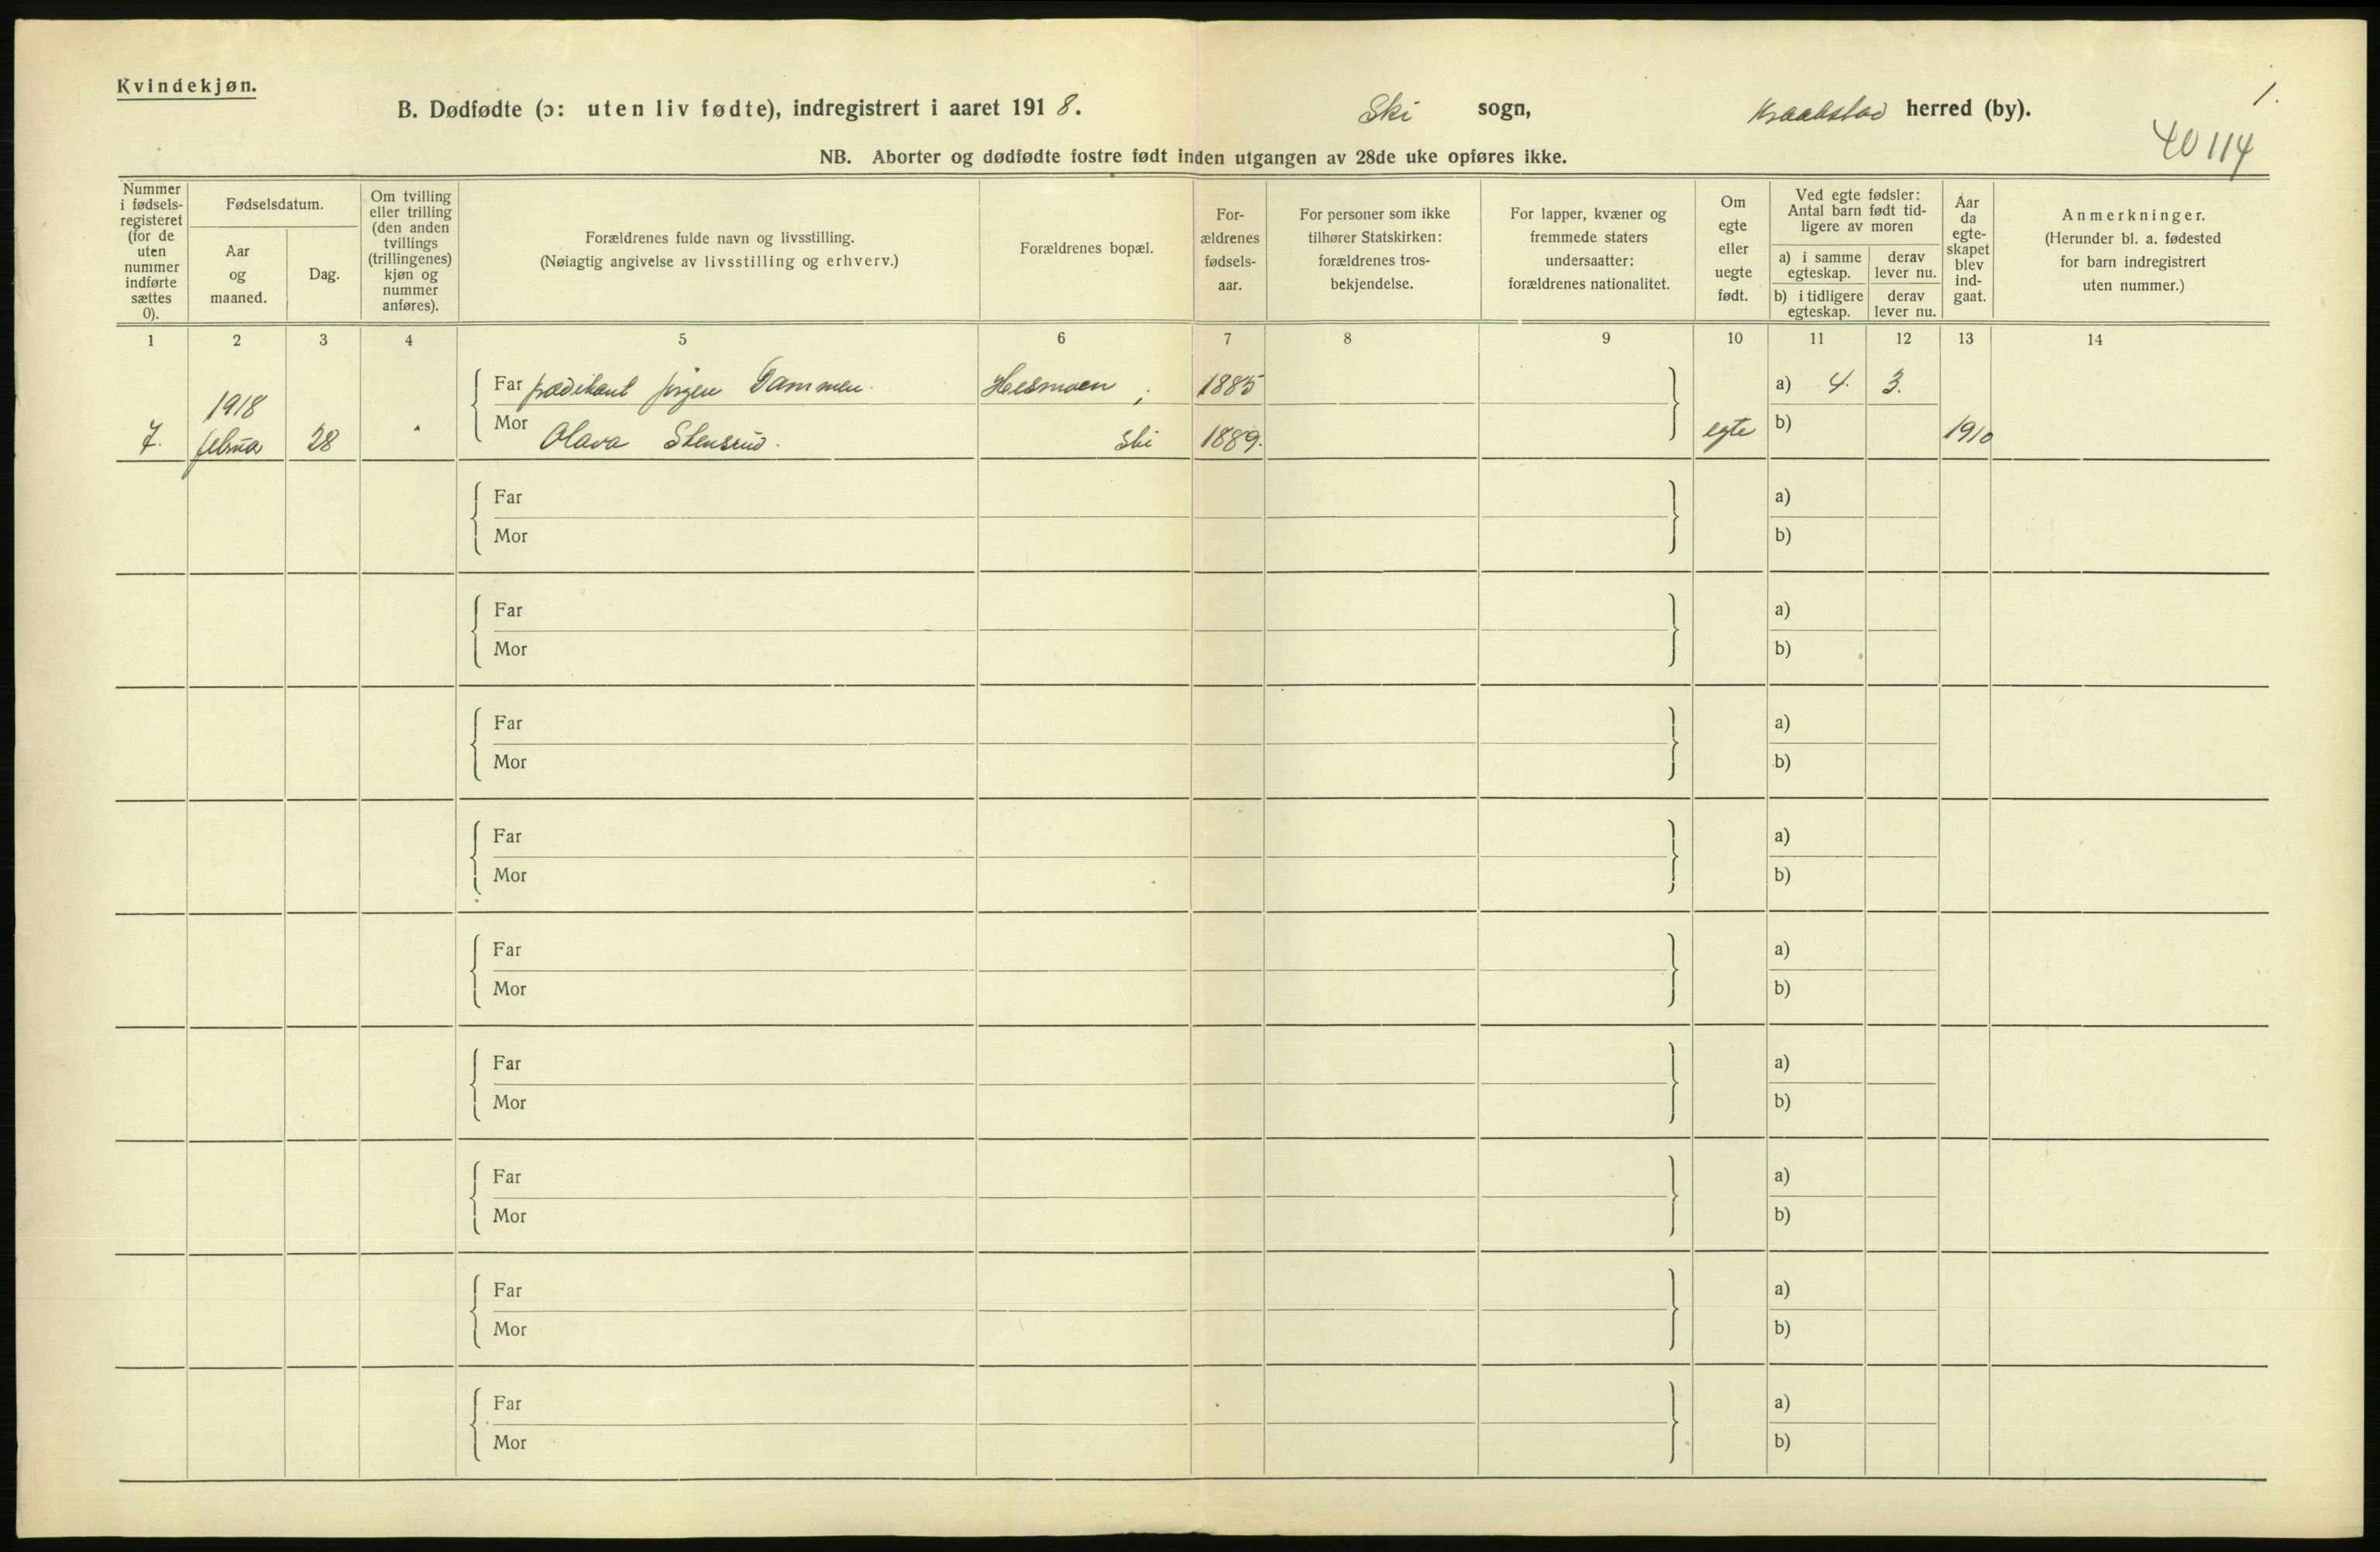 Kvindekjøn.
B. Dødfødte (ɔ: uten liv fødte), indregistrert i aaret 1918. Ski sogn, Kraakstad herred (by).
1.
40114
NB. Aborter og dødfødte fostre født inden utgangen av 28de uke opføres ikke.
Nummer i fødsels-registeret (for de uten nummer indførte sættes 0).
Fødselsdatum.
Aar og maaned.
Dag.
Om tvilling eller trilling (den anden tvillings (trillingenes) kjøn og nummer anføres).
Forældrenes fulde navn og livsstilling.
(Nøiagtig angivelse av livsstilling og erhverv.)
Forældrenes bopæl.
For-ældrenes fødsels-aar.
For personer som ikke tilhører Statskirken: forældrenes tros-bekjendelse.
For lapper, kvæner og fremmede staters undersaatter: forældrenes nationalitet.
Om egte eller uegte født.
Ved egte fødsler: Antal barn født tid-ligere av moren
a) i samme egteskap.
derav lever nu.
b) i tidligere egteskap.
derav lever nu.
Aar da egte-skapet blev ind-gaat.
Anmerkninger.
(Herunder bl. a. fødested for barn indregistrert uten nummer.)
1 2 3 4 5 6 7 8 9 10 11 12 13 14
Far prædikant Jørgen Dammen. 1885 a) 4. 3.
7. 1918 februar 28 " Mor Olava Stensrud. Ski 1889. egte b) 1910
Far a)
Mor b)
Far a)
Mor b)
Far a)
Mor b)
Far a)
Mor b)
Far a)
Mor b)
Far a)
Mor b)
Far a)
Mor b)
Far a)
Mor b)
Far a)
Mor b)